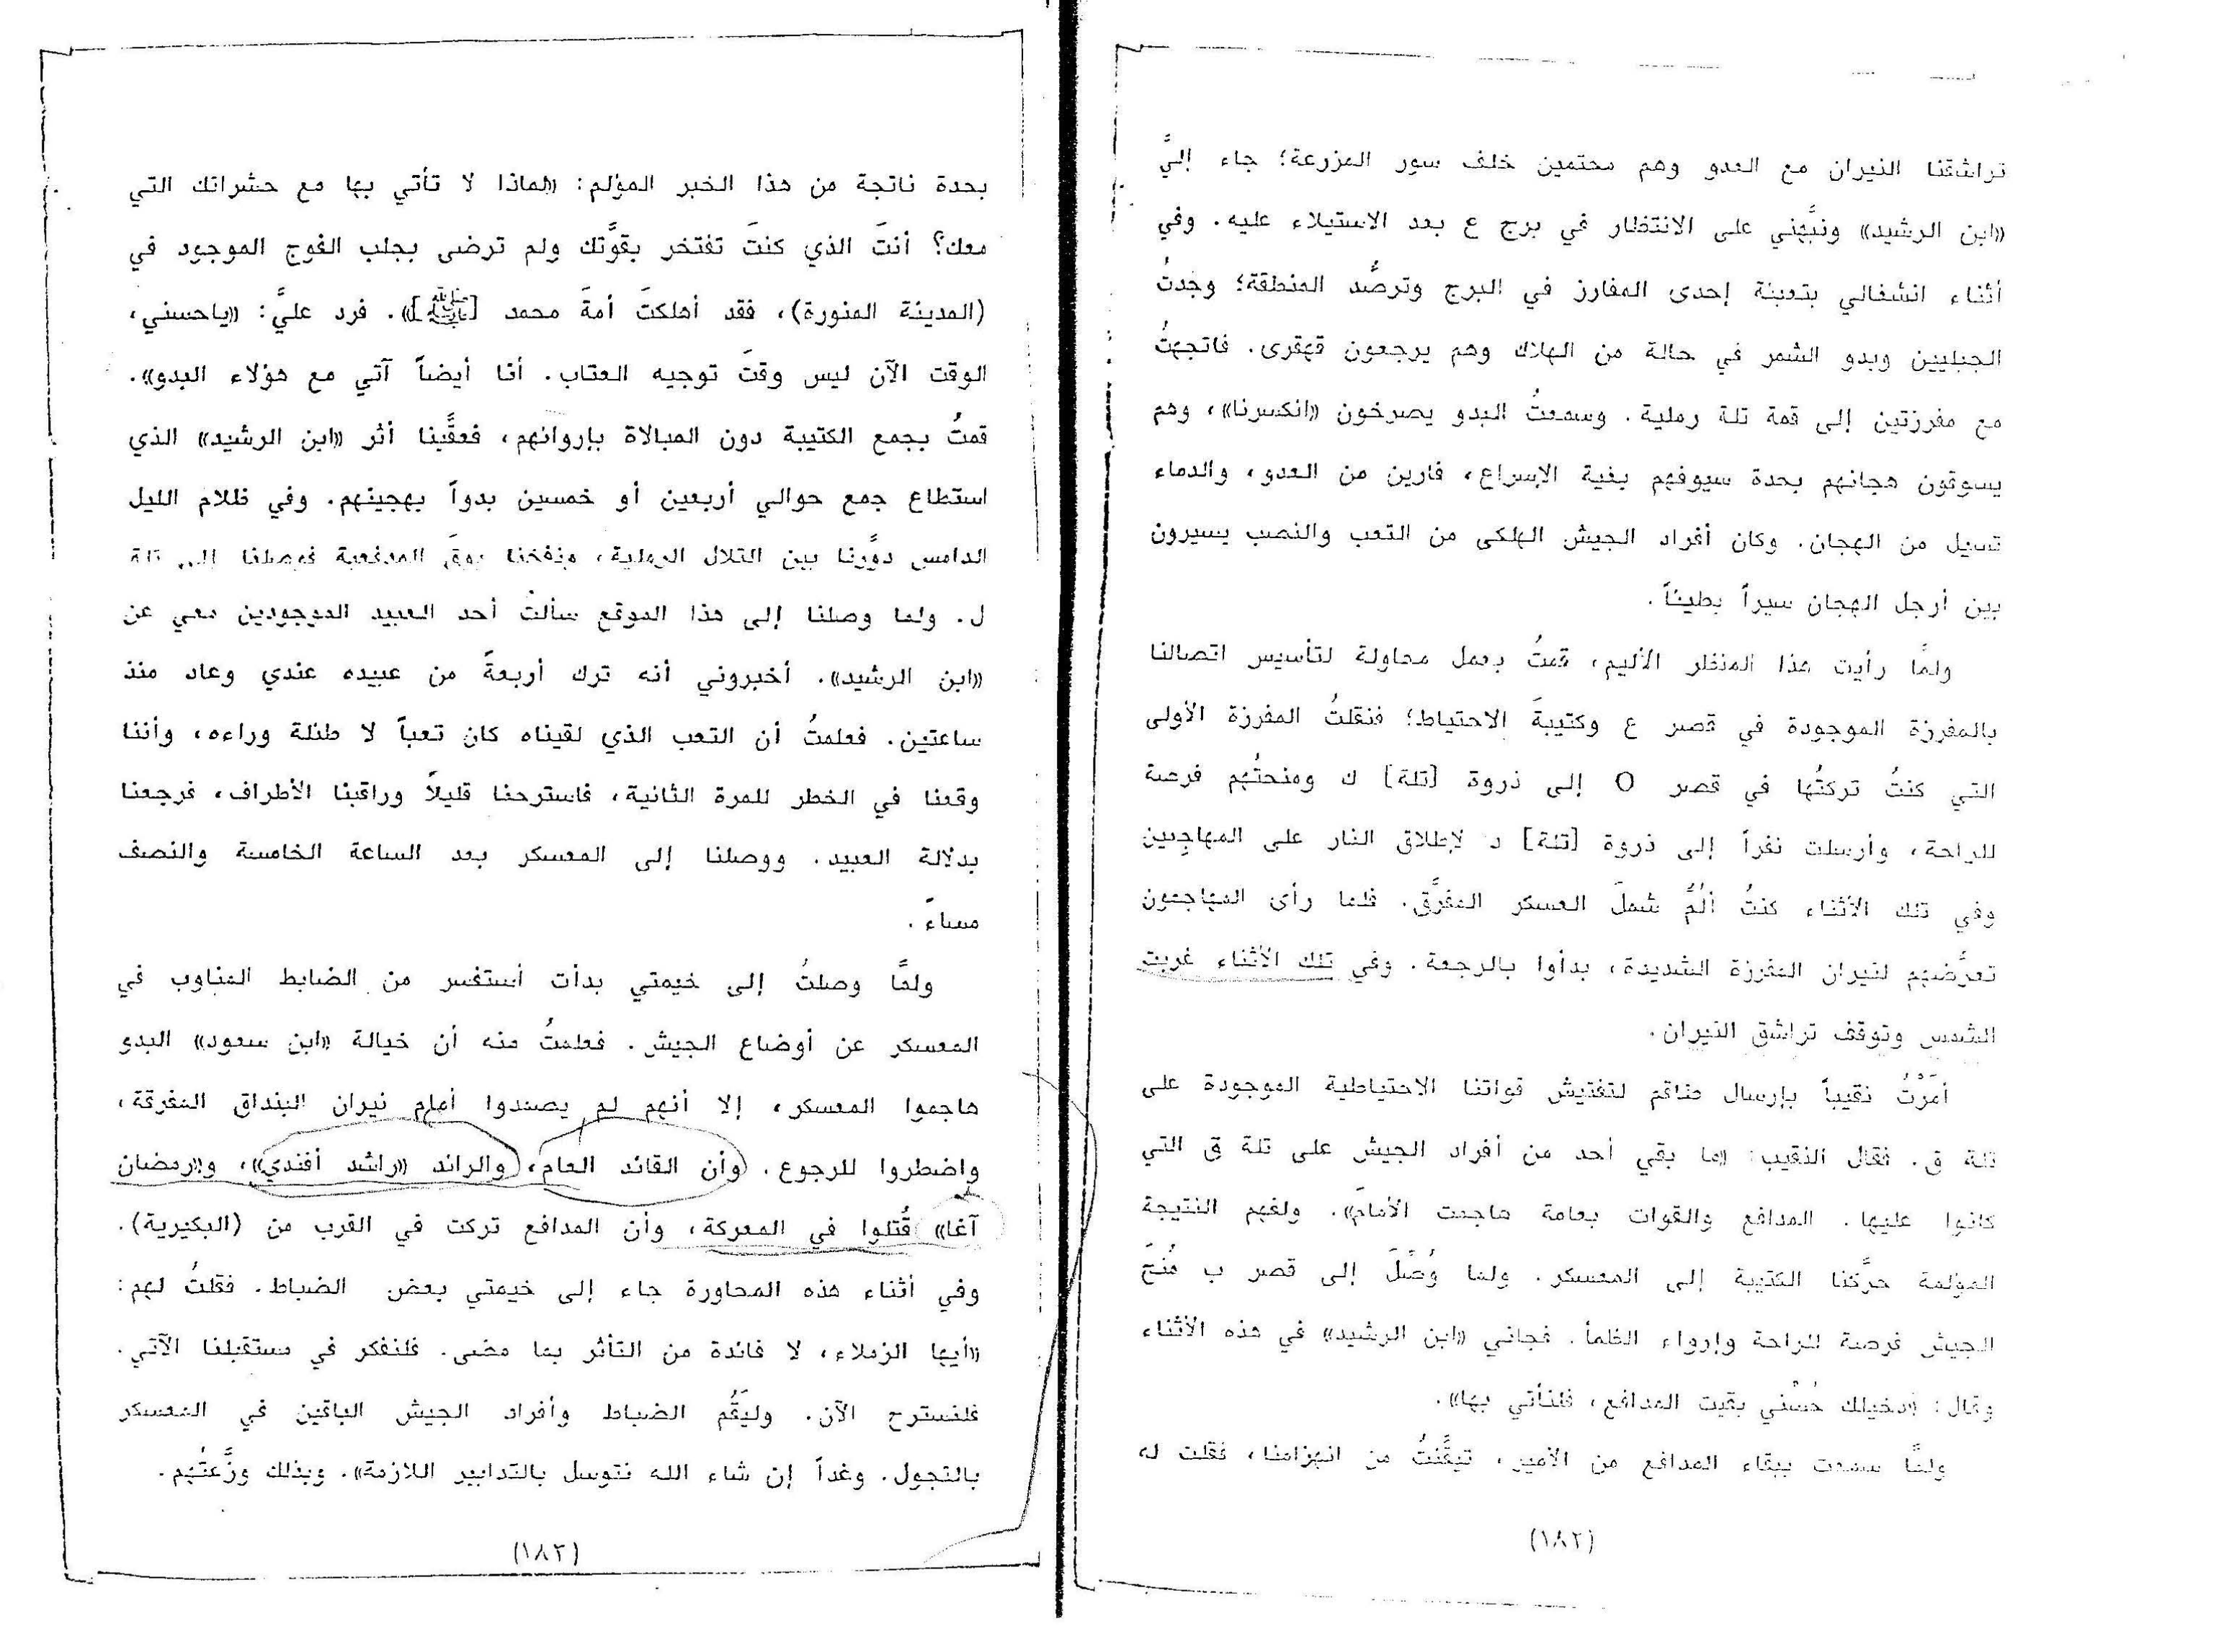 تراشقنا النيران مع العدو وهم محتمين خلف سور المزرعة؛ جاء إليَّ
«ابن الرشيد» ونبَّهني على الانتظار في برج ع بعد الاستيلاء عليه. وفي
أثناء انشغالي بتعبئة إحدى المفارز في البرج وترصُّد المنطقة؛ وجدتُ
الجبليين وبدو الشمر في حالة من الهلاك وهم يرجعون قهقرى. فاتجهتُ
مع مفرزتين إلى قمة تلة رملية. وسمعتُ البدو يصرخون «انكسرنا»، وهم
يسوقون هجانهم بحدة سيوفهم بغية الإسراع، فارين من العدو، والدماء
تسيل من الهجان. وكان أفراد الجيش الهلكى من التعب والنصب يسيرون
بين أرجل الهجان سيراً بطيئاً.
ولمَّا رأيت هذا المنظر الأليم، قمتُ بعمل محاولة لتأسيس اتصالنا
بالمفرزة الموجودة في قصر ع وكتيبةَ الاحتياط؛ فنقلتُ المفرزة الأولى
التي كنتُ تركتُها في قصر O إلى ذروة [تلة] ك ومنحتُهم فرصة
للراحة، وأرسلت نفراً إلى ذروة [تلة] د لإطلاق النار على المهاجِمين
وفي تلك الأثناء كنتُ ألمُّ شملَ العسكر المفرَّق. فلما رأى المهاجمون
تعرُّضهم لنيران المفرزة الشديدة، بدأوا بالرجعة. وفي تلك الأثناء غربت
الشمس وتوقف تراشق النيران.
أمَرْتُ نقيباً بإرسال طاقم لتفتيش قواتنا الاحتياطية الموجودة على
تلة ق. فقال النقيب: «ما بقي أحد من أفراد الجيش على تلة ق التي
كانوا عليها. المدافع والقوات بعامة هاجمت الأمامَ». ولفهم النتيجة
المؤلمة حرَّكنا الكتيبة إلى المعسكر. ولما وُصِّلَ إلى قصر ب مُنحَ
الجيش فرصة للراحة وإرواء الظمأ. فجاني «ابن الرشيد» في هذه الأثناء
وقال: «دخيلك حُسْني بقيت المدافع، فلنأتي بها».
ولمَّا سمعت ببقاء المدافع من الأمير، تيقَّنتُ من انهزامنا، فقلت له
(١٨٢)
بحدة ناتجة من هذا الخبر المؤلم: «لماذا لا تأتي بها مع حشراتك التي
معك؟ أنتَ الذي كنتَ تفتخر بقوَّتك ولم ترضى بجلب الفوج الموجود في
(المدينة المنورة)، فقد أهلكتَ أمةَ محمد [ﷺ]». فرد عليَّ: «ياحسني،
الوقت الآن ليس وقتَ توجيه العتاب. أنا أيضاً آتي مع هؤلاء البدو».
قمتُ بجمع الكتيبة دون المبالاة بإروائهم، فعقَّبنا أثر «ابن الرشيد» الذي
استطاع جمع حوالي أربعين أو خمسين بدواً بهجينهم. وفي ظلام الليل
الدامس دوَّرنا بين التلال الرملية، ونفخنا بوقَ المدفعية فوصلنا إلى تلة
ل. ولما وصلنا إلى هذا الموقع سألتُ أحد العبيد الموجودين معي عن
«ابن الرشيد». أخبروني أنه ترك أربعةً من عبيده عندي وعاد منذ
ساعتين. فعلمتُ أن التعب الذي لقيناه كان تعباً لا طئلة وراءه، وأننا
وقعنا في الخطر للمرة الثانية، فاسترحنا قليلاً وراقبنا الأطراف، فرجعنا
بدلالة العبيد. ووصلنا إلى المعسكر بعد الساعة الخامسة والنصف
مساءً.
ولمَّا وصلتُ إلى خيمتي بدأت أستفسر من الضابط المناوب في
المعسكر عن أوضاع الجيش. فعلمتُ منه أن خيالة «ابن سعود» البدو
هاجموا المعسكر، إلا أنهم لم يصمدوا أمام نيران البنداق المفرقة،
واضطروا للرجوع. وأن القائد العام، والرائد «راشد أفندي»، و«رمضان
آغا» قُتلوا في المعركة، وأن المدافع تركت في القرب من (البكيرية).
وفي أثناء هذه المحاورة جاء إلى خيمتي بعض الضباط. فقلتُ لهم:
«أيها الزملاء، لا فائدة من التأثر بما مضى. فلنفكر في مستقبلنا الآتي.
فلنسترح الآن. وليَقُم الضباط وأفراد الجيش الباقين في المعسكر
بالتجول. وغداً إن شاء الله نتوسل بالتدابير اللازمة». وبذلك وزَّعتُهم.
(١٨٣)